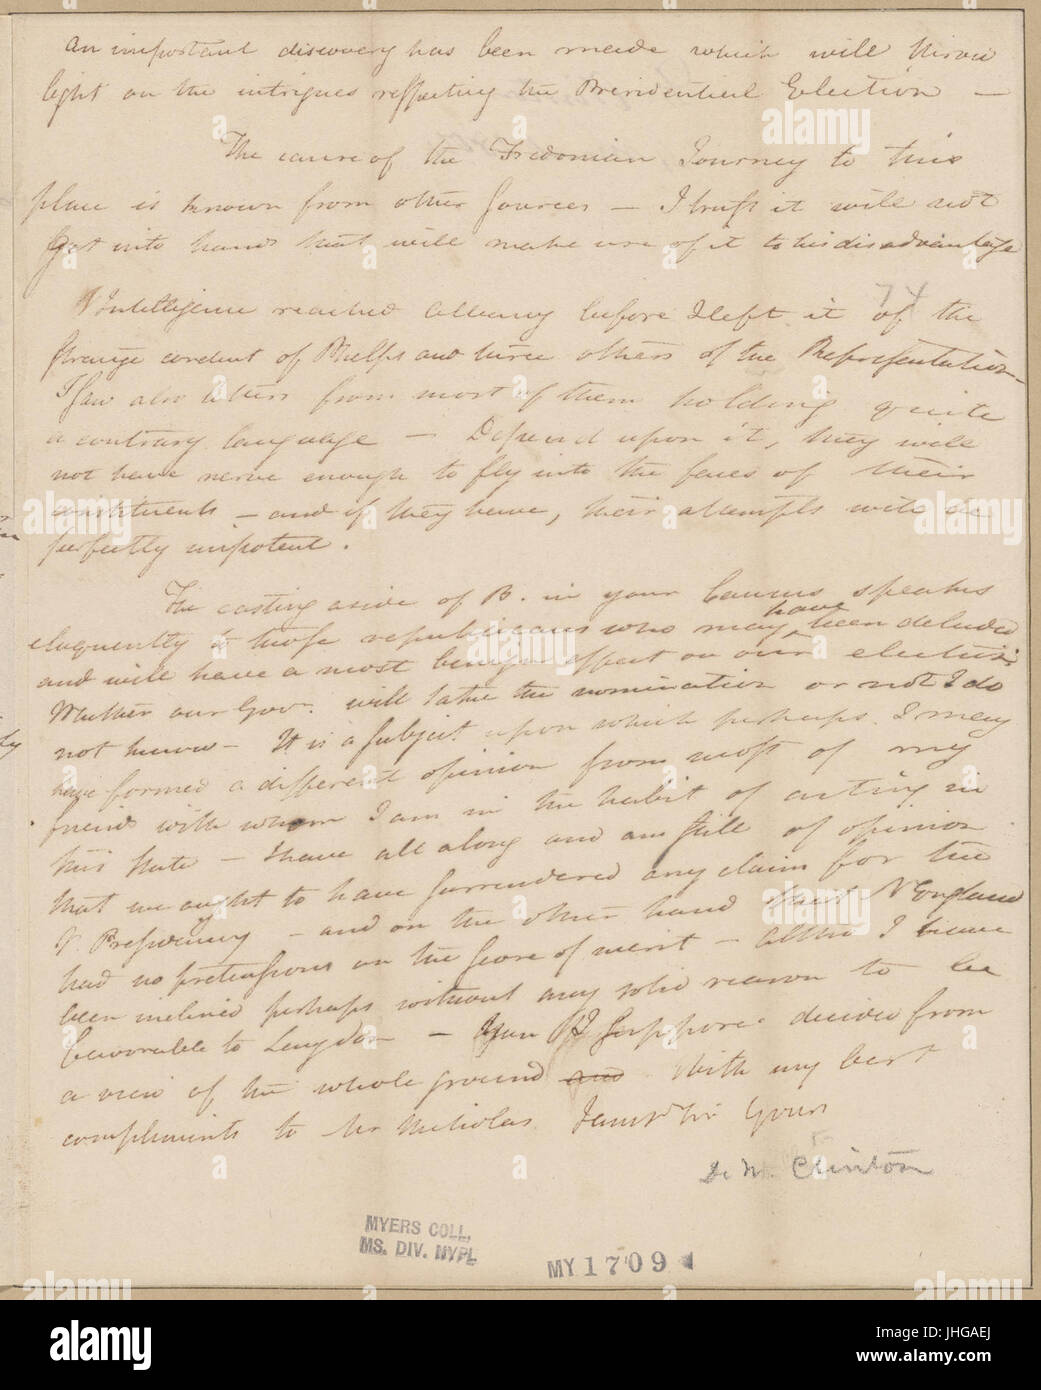 an important discovery has been made which will throw
light on the intrigues respecting the Presidential Election —
The cause of the Fredonian Journey to this
place is known from other sources — I trust it will not
get into hands that will make use of it to his disadvantage
74
Intelligence reached Albany before I left it of the
strange conduct of Phelps and three others of the Representation —
I saw also letters from most of them holding quite
a contrary language — Depend upon it, they will
not have nerve enough to fly into the faces of their
constituents — and if they have, their attempts will be
perfectly impotent.
The casting aside of B. in your Caucus speaks
eloquently to those republicans who may have been deluded
and will have a most benign effect on our election
Whether our Gov. will take the nomination or not I do
not know — It is a subject upon which perhaps I may
have formed a different opinion from most of my
friends with whom I am in the habit of acting in
this State — I have all along and am still of opinion
that we ought to have surrendered any claim for the
V. Presidency — and on the other hand that N England
had no pretensions on the score of merit — altho I have
been inclined perhaps without any solid reason to be
favorable to Langdon — You I suppose decided from
a view of the whole ground and With my best
compliments to Mr Nicholas Yours
De W. Clinton
MYERS COLL.
MS. DIV. NYPL
MY 1709
alamy stock photo
JHGAEJ
www.alamy.com